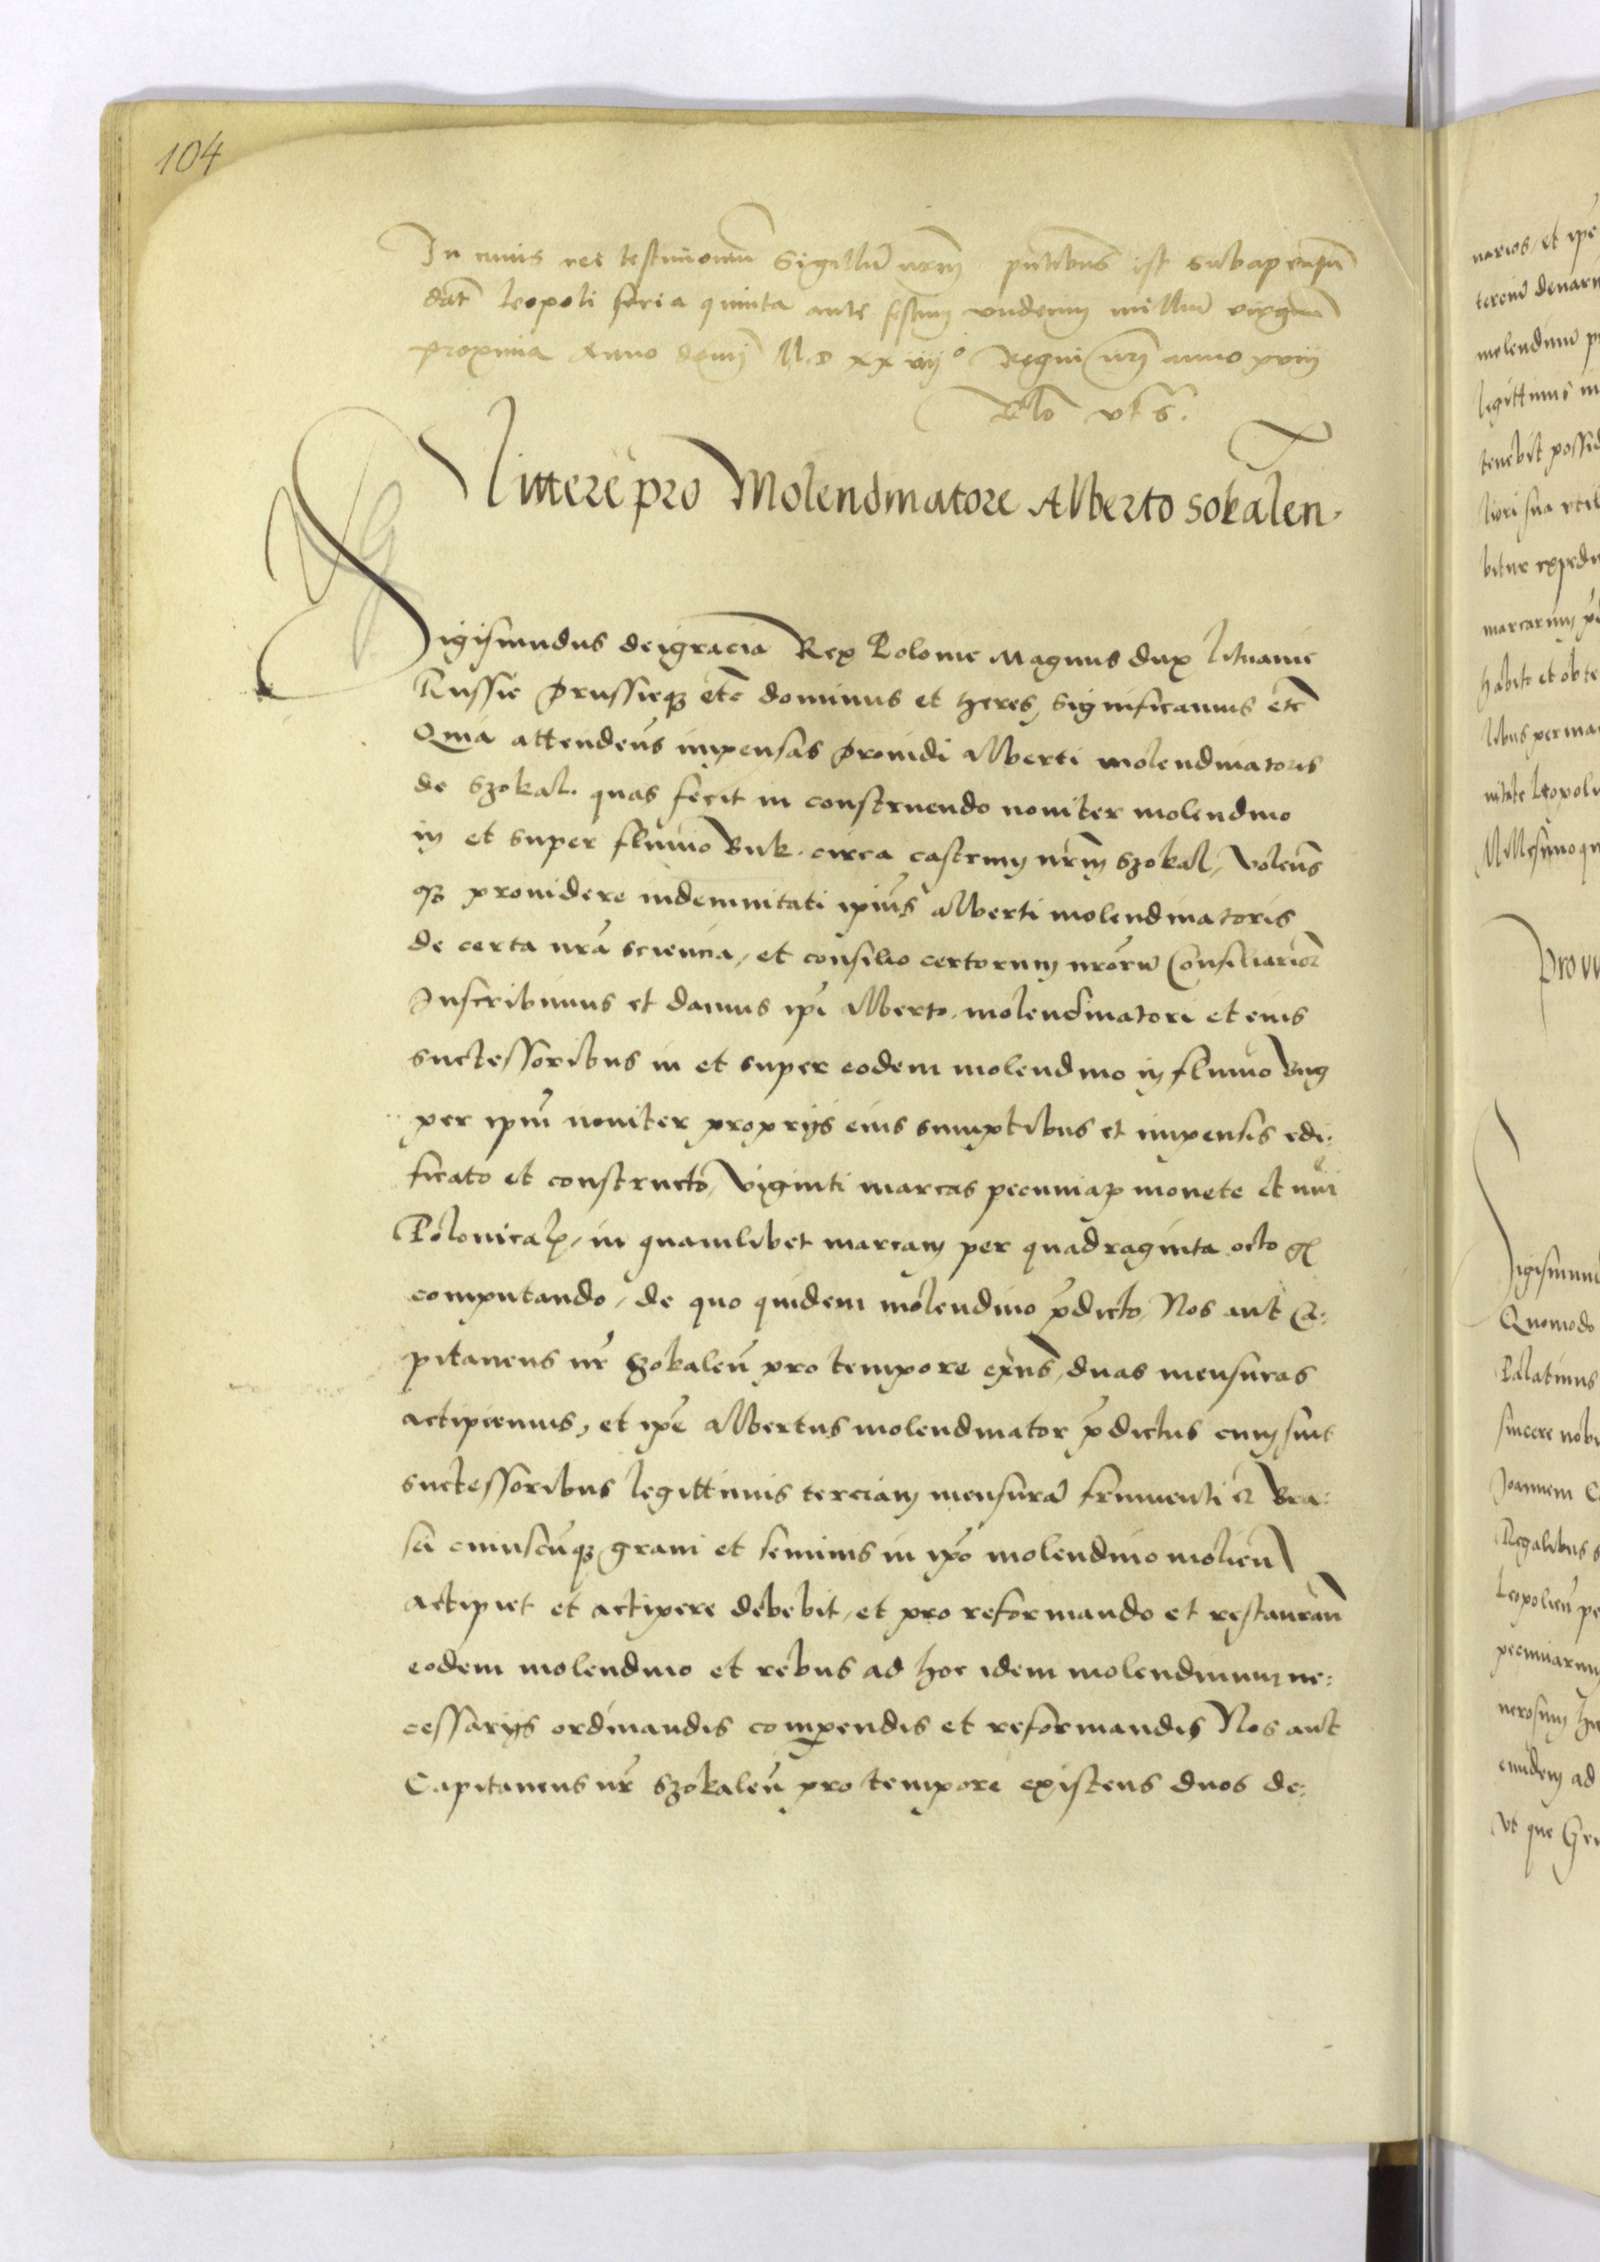 104
In cuius rei testimonium Sigillū nrm̄ pn̄tibus est subappensum
dat̄ Leopoli feria quinta ante festum undecim milliū virginū
proxima Anno domī M.D xx vij° Regni nrī anno xviij
Rło vt s.
Littere pro Molendinatore Alberto Sokalen.
Sigismundus dei gracia Rex Polonie Magnus dux Lituanie
Russie Prussieqꝫ etc̄ dominus et heres, Significamus etc̄
Quia attenden̄s impensas providi Alberti molendinatoris
de Szokal. quas fecit in construendo noviter molendino
in et super fluvio Buk. circa castrum nrm̄ Szokal, Volen̄s
qꝫ providere indemnitati ipīus Alberti molendinatoris
de certa nrā sciencia, et consilio certorum nrōrū Consiliarioꝝ
Inscribimus et damus ipī Alberto molendinatori et eius
successoribus in et super eodem molendino in fluvio Bug
per ipm̄ noviter proprijs eius sumptibus et impensis edi:
ficato et constructo, Viginti marcas pecuniaꝝ monete et nūi
Polonicalꝭ, in quamlibet marcam per quadraginta octo gꝭ
computando, de quo quidem molendino p̄dicto, Nos aut Ca:
pitaneus nr̄ Szokalen̄ pro tempore exn̄s, duas mensuras
accipiemus, et ipē Albertus molendinator p̄dictus cum suis
successoribus legittimis terciam mensurā frumenti et Bra:
sii cuiuscūqꝫ grani et seminis in ipō molendino molien̄
accipiet et accipere debebit, et pro reformando et restauran̄
eodem molendino et rebus ad hoc idem molendinum ne:
cessarijs ordinandis comperendis et reformandis Nos aut
Capitaneus nr̄ Szokalen̄ pro tempore existens duos de:
narios, et ipē
molendinū
legittimis
tenebit
marcarum
Prow
Quomodo
Palatinus
sincere nobi
Regalibus